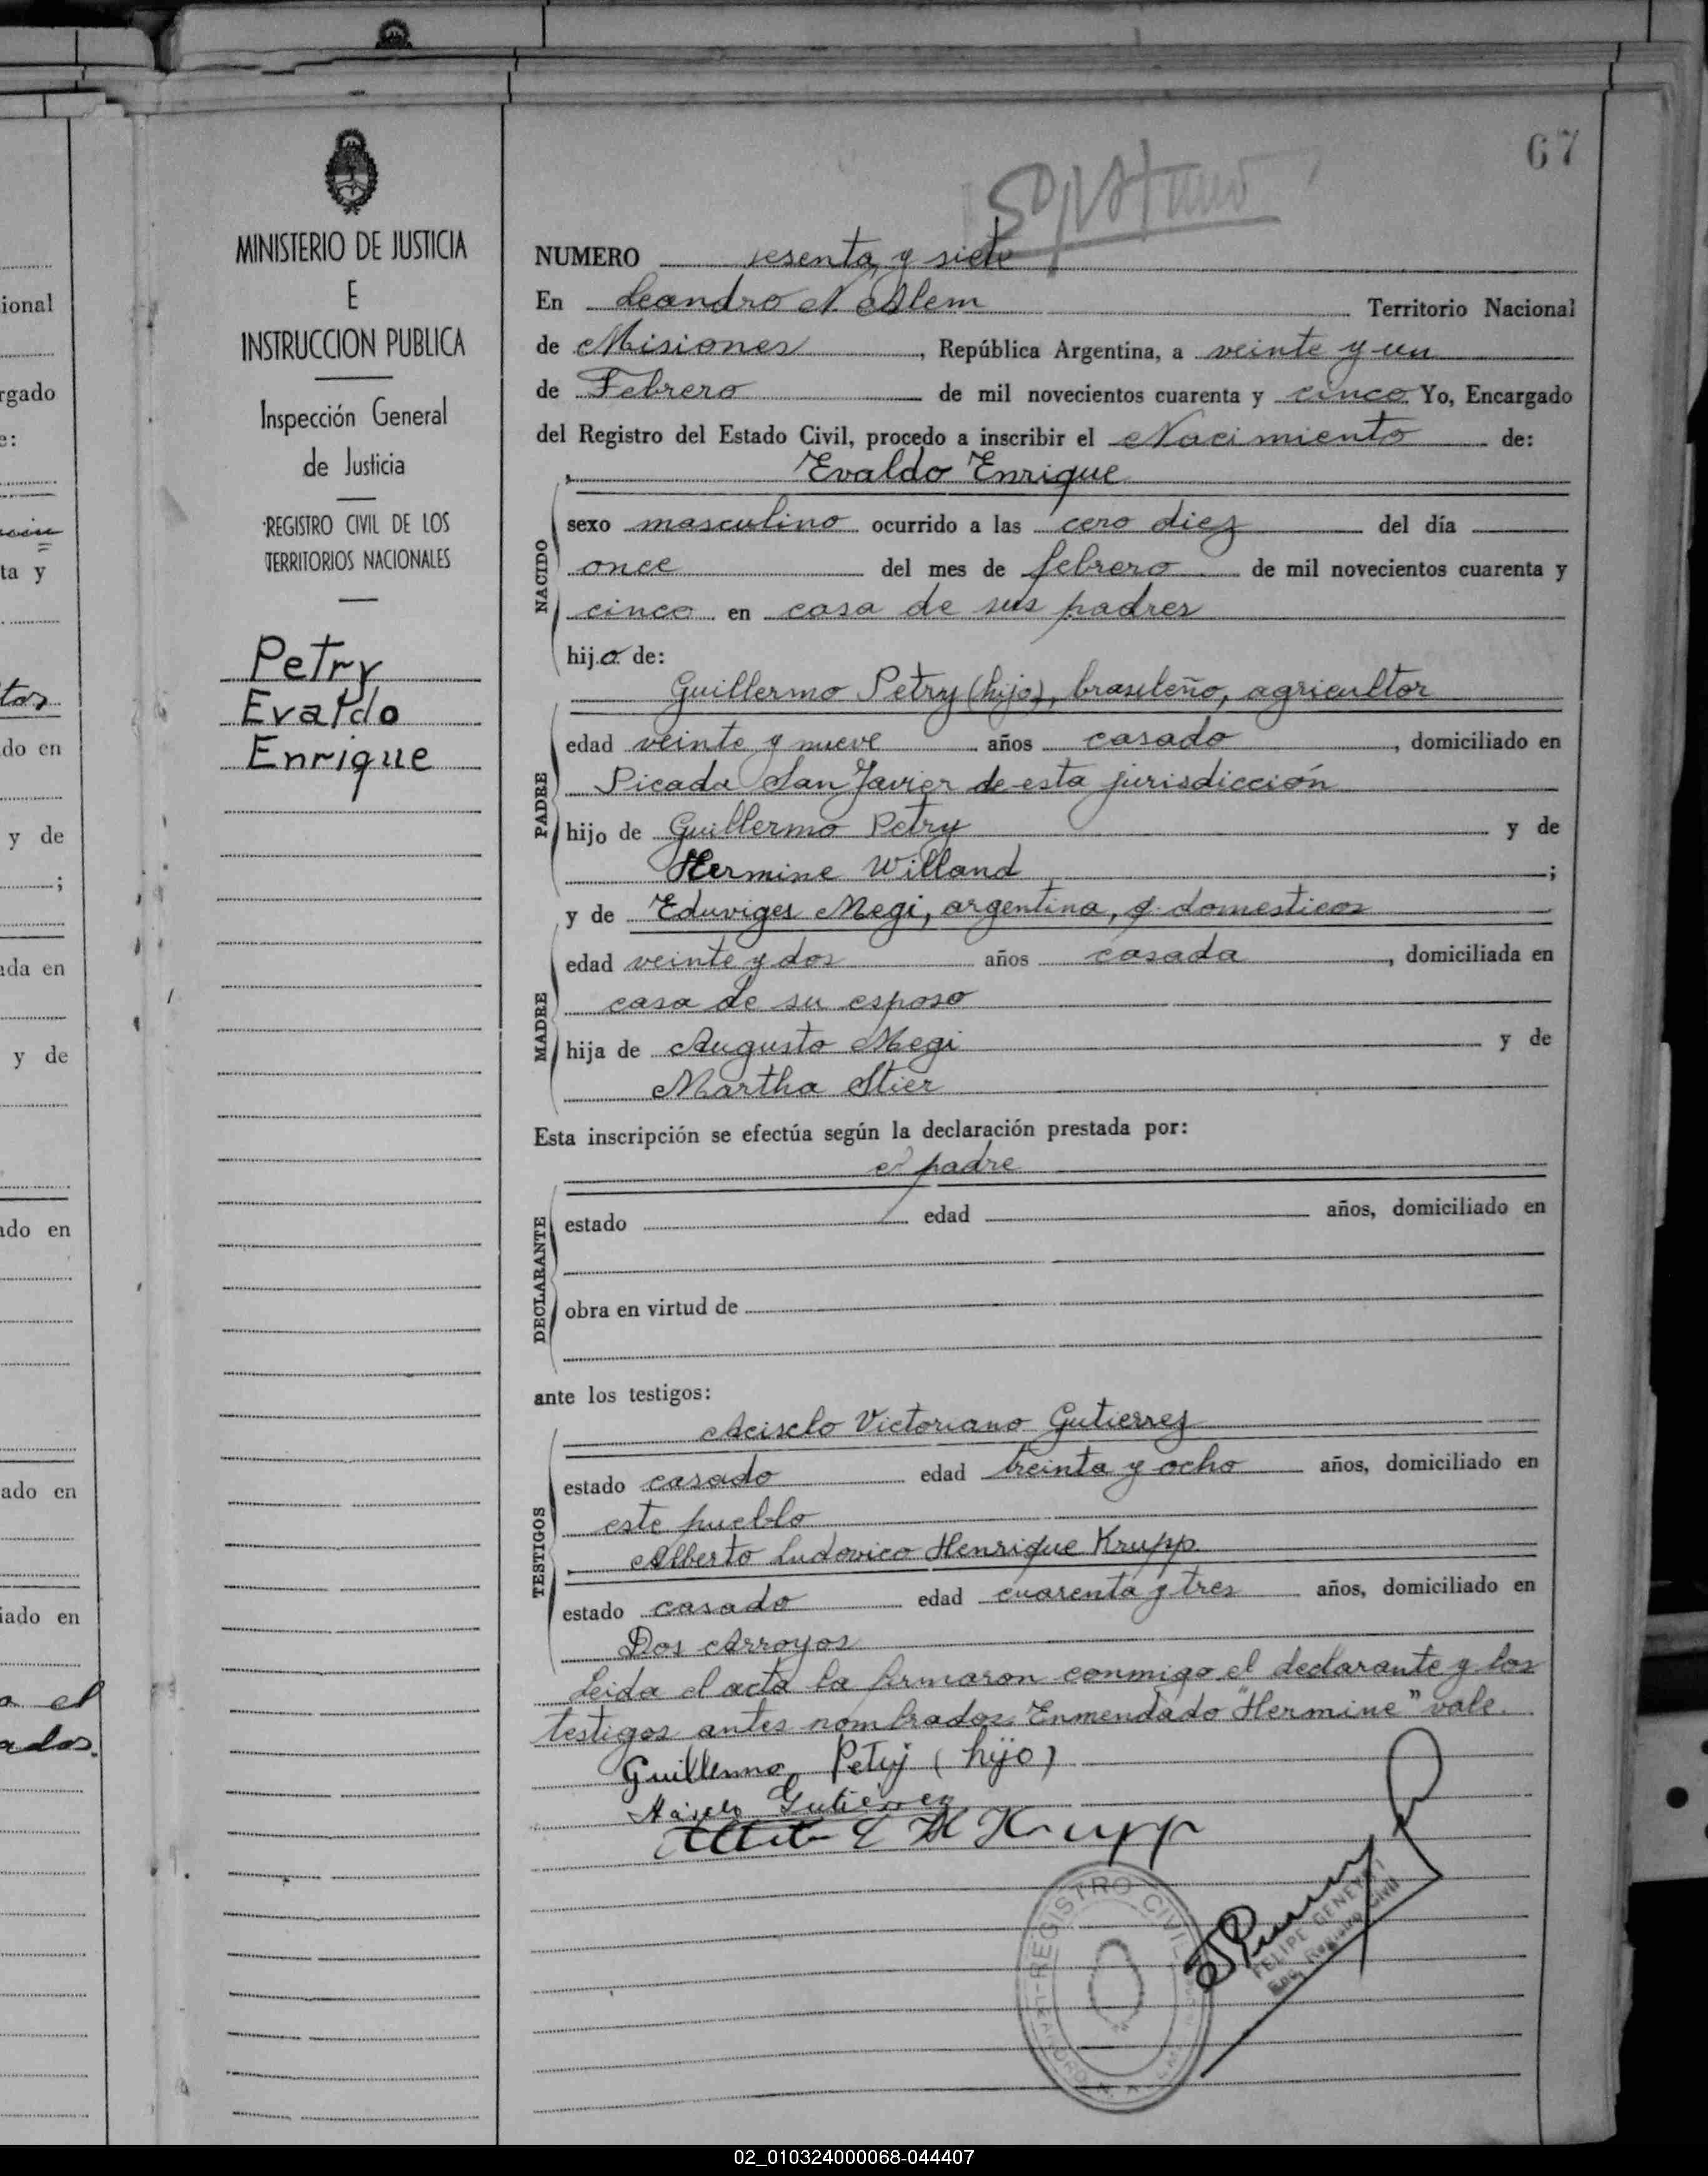 67
NUMERO sesenta y siete
En Leandro N. Alem Territorio Nacional
de Misiones, República Argentina, a veinte y un
de Febrero de mil novecientos cuarenta y cinco Yo, Encargado
del Registro del Estado Civil, procedo a inscribir el Nacimiento de:
Evaldo Enrique
NACIDO
sexo masculino ocurrido a las cero diez del día
once del mes de febrero de mil novecientos cuarenta y
cinco en casa de sus padres
hijo de:
Guillermo Petry (hijo), brasileño, agricultor
PADRE
edad veinte y nueve años casado, domiciliado en
Picada San Javier de esta jurisdicción
hijo de Guillermo Petry y de
Hermine Willand;
y de Eduviges Megi, argentina, q. domesticos
MADRE
edad veinte y dos años casada, domiciliada en
casa de su esposo
hija de Augusto Megi y de
Martha Stier
Esta inscripción se efectúa según la declaración prestada por:
el padre
DECLARANTE
estado edad años, domiciliado en
obra en virtud de
ante los testigos:
Acisclo Victoriano Gutierrez
TESTIGOS
estado casado edad treinta y ocho años, domiciliado en
este pueblo
Alberto Ludovico Henrique Krupp
estado casado edad cuarenta y tres años, domiciliado en
Dos Arroyos
Leida el acta la firmaron conmigo el declarante y los
testigos antes nombrados. Enmendado "Hermine" vale.
Guillermo Petry (hijo)
Gutierrez
L H Krupp
REGISTRO CIVIL
FELIPE GENEYRO
Enc. Registro Civil
MINISTERIO DE JUSTICIA
E
INSTRUCCION PUBLICA
Inspección General
de Justicia
REGISTRO CIVIL DE LOS
TERRITORIOS NACIONALES
Petry
Evaldo
Enrique
ional
rgado
e:
ta y
tos
do en
y de
;
ada en
y de
ado en
ado en
iado en
a el
ados.
02_010324000068-044407